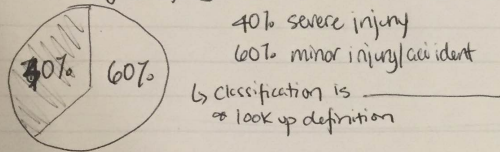 40% severe injury
40% 60% 60% minor injury/accident
↳ classification is ____________
* look up definition